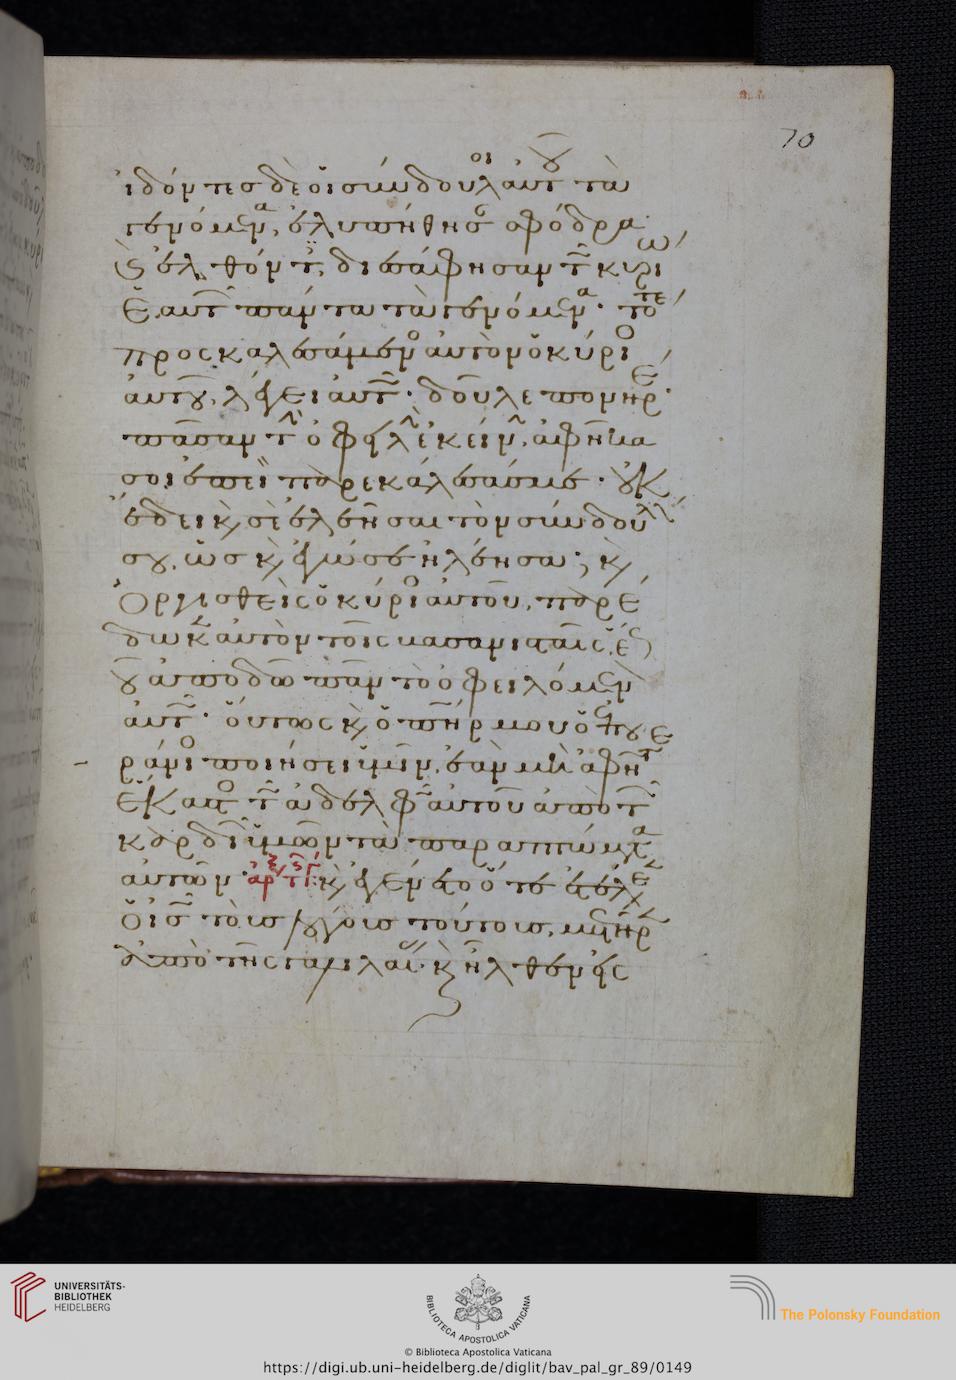 70
ἰδόντες δὲ οἱ σύνδουλοι αὐτοῦ τὰ
γενόμενα, ἐλυπήθησαν σφόδρα·
καὶ ἐλθόντες, διεσάφησαν τῷ κυρίῳ
ἑαυτῶν πάντα τὰ γενόμενα· τότε
προσκαλεσάμενος αὐτὸν ὁ κύριος
αὐτοῦ, λέγει αὐτῷ· δοῦλε πονηρέ·
πᾶσαν τὴν ὀφειλὴν ἐκείνην, ἀφῆκα
σοι ἐπεὶ παρεκάλεσάς με· οὐκ
ἔδει καὶ σὲ ἐλεῆσαι τὸν σύνδουλόν
σου, ὡς καὶ ἐγώ σε ἠλέησα; καὶ
ὀργισθεὶς ὁ κύριος αὐτοῦ, παρέ
δωκεν αὐτὸν τοῖς βασανισταῖς, ἕως
οὗ ἀποδῶ πᾶν τὸ ὀφειλόμενον
αὐτῷ· οὕτως καὶ ὁ πατήρ μου ὁ ἐπου
ράνιος ποιήσει ὑμῖν, ἐὰν μὴ ἀφῆτε
ἕκαστος τῷ ἀδελφῷ αὐτοῦ ἀπὸ τῶν
καρδιῶν ὑμῶν τὰ παραπτώματα
αὐτῶν· καὶ ἐγένετο ὅτε ἐτέλεσεν
ὁ ἰς τοὺς λόγους τούτους, μετῆρεν
ἀπὸ τῆς γαλιλαίας· καὶ ἦλθεν εἰς
UNIVERSITÄTS-
BIBLIOTHEK
HEIDELBERG
BIBLIOTECA APOSTOLICA VATICANA
The Polonsky Foundation
© Biblioteca Apostolica Vaticana
https://digi.ub.uni-heidelberg.de/diglit/bav_pal_gr_89/0149